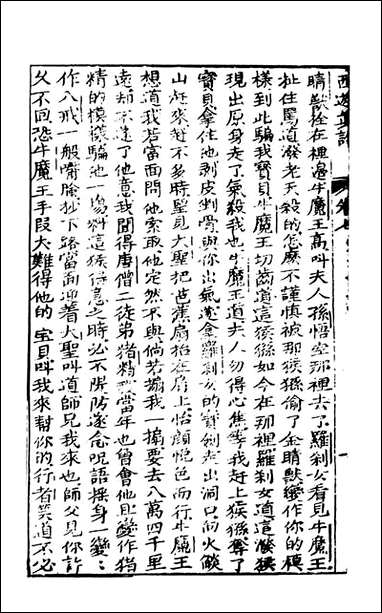 西遊真詮
睛獸拴在裡邊牛魔王高叫夫人孫悟空那裡去了羅刹女看見牛魔王
扯住罵道潑老天殺的怎麼不謹慎被那猴猻偷了金睛獸變作你的模
樣到此騙我寶貝牛魔王切齒道這猴猻如今在那裡羅刹女道這潑猴
現出原身走了氣殺我也牛魔王道夫人勿得心焦等我赶上猴猻奪了
寶貝拿住他剝皮剉骨與你出氣遂拿羅刹女的寶劍走出洞只向火燄
山赶來赶不多時望見大聖把芭蕉扇掮在肩上怡顏悅色而行牛魔王
想道我若當面問他索取他定然不與倘若搧我一搧要去八萬四千里
遠却不遂了他意我聞得唐僧二徒弟猪精我當年也曾會他且變作猪
精的模樣騙他一塲料這猴得意之時必不防遂念呪語搖身一變
作八戒一般嘴臉抄下路當面迎着大聖叫道師兄我來也師父見你許
久不回恐牛魔王手段大難得他的寶貝叫我來幫你的行者笑道不必